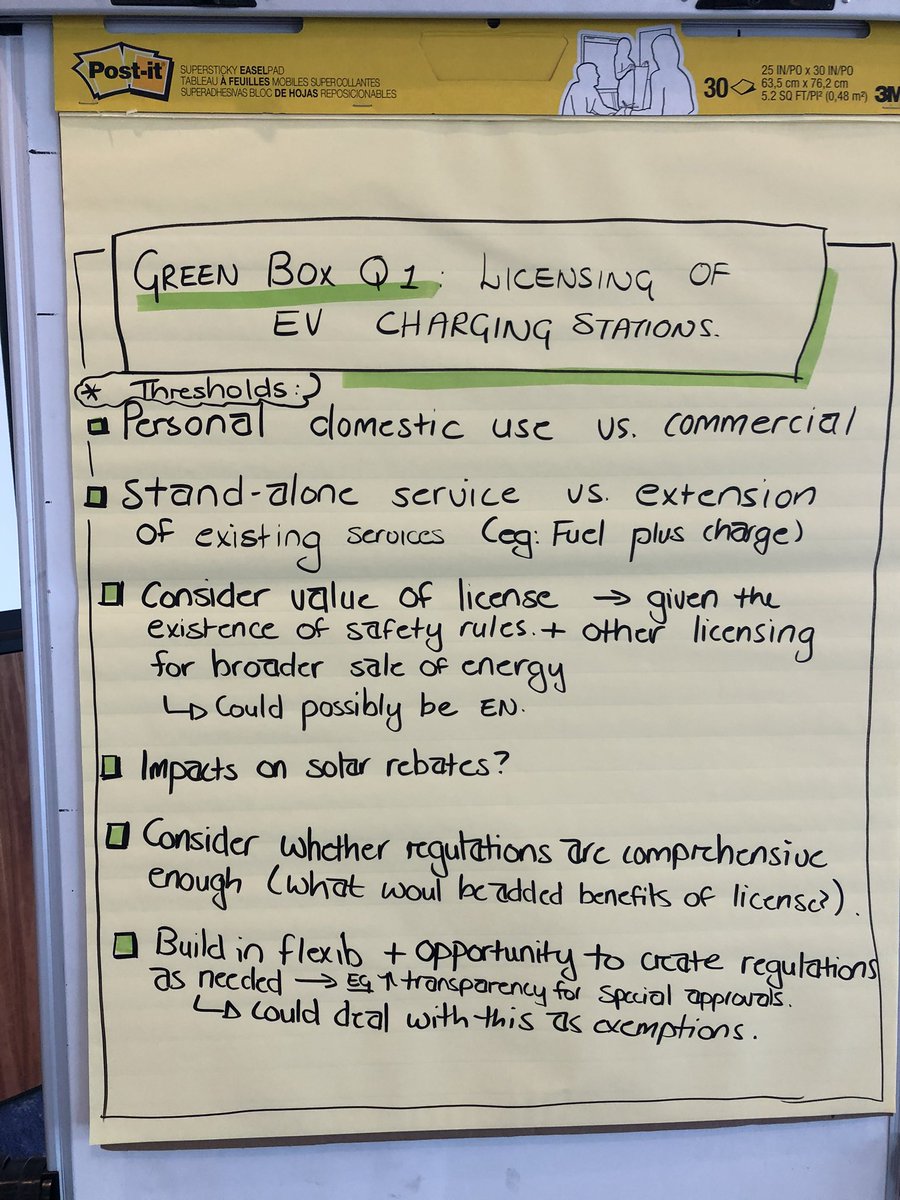 Post-it
SUPERSTICKY EASELPAD
TABLEAU À FEUILLES MOBILES SUPERCOLLANTES
SUPERADHESIVAS BLOC DE HOJAS REPOSICIONABLES
30
25 IN/PO x 30 IN/PO
63,5 cm x 76,2 cm
5.2 SQ FT/PI² (0,48 m²)
3M
GREEN BOX Q1: LICENSING OF
EV CHARGING STATIONS.
* Thresholds:
Personal domestic use vs. commercial
Stand-alone service vs. extension
of existing services (eg: Fuel plus charge)
Consider value of license → given the
existence of safety rules. + other licensing
for broader sale of energy
↳ Could possibly be EN.
Impacts on solar rebates?
Consider whether regulations are comprehensive
enough (what woul be added benefits of license?).
Build in flexib + opportunity to create regulations
as needed → EG ↑ transparency for special approvals.
↳ Could deal with this as exemptions.